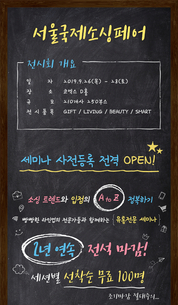 서울국제소싱페어
전시회 개요
일 자 2019.9.26(목) - 28(토)
장 소 코엑스 D홀
규 모 210여사 250부스
전시품목 GIFT / LIVING / BEAUTY / SMART
세미나 사전등록 전격 OPEN!
소싱 트렌드와 입점의 A to Z 정복하기
빵빵한 전문가들과 함께하는 유통전문 세미나
2년 연속 전석 마감!
세션별 선착순 무료 100명
조기마감 절대주의...